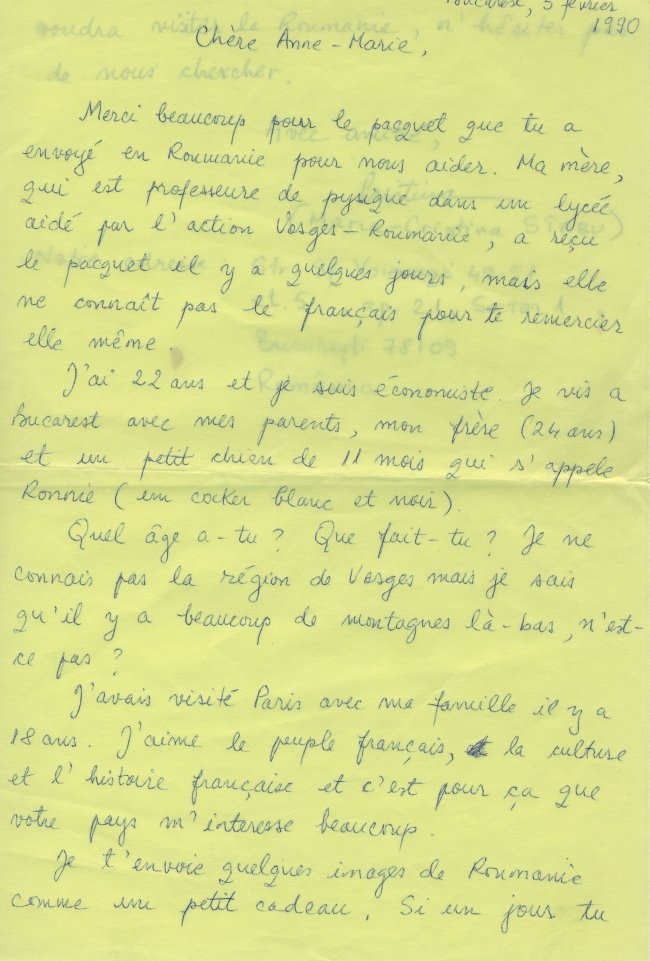 Bucarest, 5 février
1990
Chère Anne-Marie,
Merci beaucoup pour le pacquet que tu a
envoyé en Roumanie pour nous aider. Ma mère,
qui est professeure de pysique dans un lycée
aidé par l'action Vosges-Roumanie, a reçu
le pacquet il y a quelques jours, mais elle
ne connaît pas le français pour te remercier
elle même.
J'ai 22 ans et je suis économiste. Je vis a
Bucarest avec mes parents, mon frère (24 ans)
et un petit chien de 11 mois qui s'appele
Ronnie (un cocker blanc et noir).
Quel âge a-tu? Que fait-tu? Je ne
connais pas la région de Vosges mais je sais
qu'il y a beaucoup de montagnes là-bas, n'est-
ce pas?
J'avais visité Paris avec ma famille il y a
18 ans. J'aime le peuple français, la culture
et l'histoire française et c'est pour ça que
votre pays m'interesse beaucoup.
Je t'envoie quelques images de Roumanie
comme un petit cadeau. Si un jour tu
voudra visiter la Roumanie, n'hésiter pas
de nous chercher.
Avec amitié,